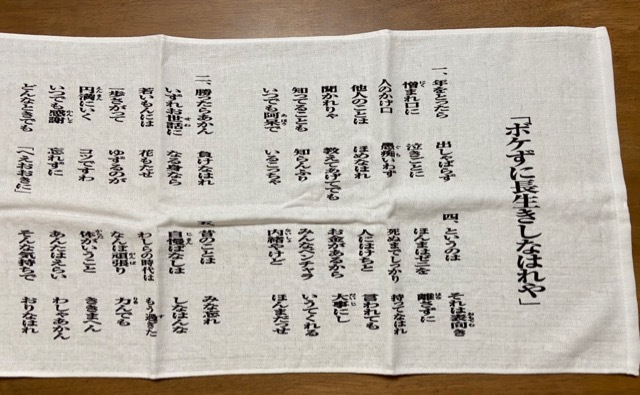 「ボケずに長生きしなはれや」
一、年をとったら 出しゃばらず
憎まれ口に 泣きごとに
人のかげ口 愚痴いわず
他人のことは ほめなはれ
聞かれりゃ 教えてあげてでも
知ってることも 知らんふり
いつでも阿呆で いるこっちゃ
二、勝ったらあかん 負けなはれ
いずれお世話に なる身なら
若いもんには 花もたせ
一歩さがって ゆずるのが
円満にいく コツですわ
いつでも感謝 忘れずに
どんなときでも 「へえおおきに」
四、というのは それは表向き
ほんまはゼニを 離さずに
死ぬまでしっかり 持ってなはれ
人にはけちと 言われても
お金があるから 大事にし
みんなベンチャラ いうてくれる
内緒やけど ほんまだっせ
五、昔のことは みな忘れ
自慢ばなしは しなはんな
わしらの時代は もう過ぎた
なんぼ頑張り 力んでも
体がいうこと ききまへん
あんたはえらい わしゃあかん
そんな気持ちで おりなはれ